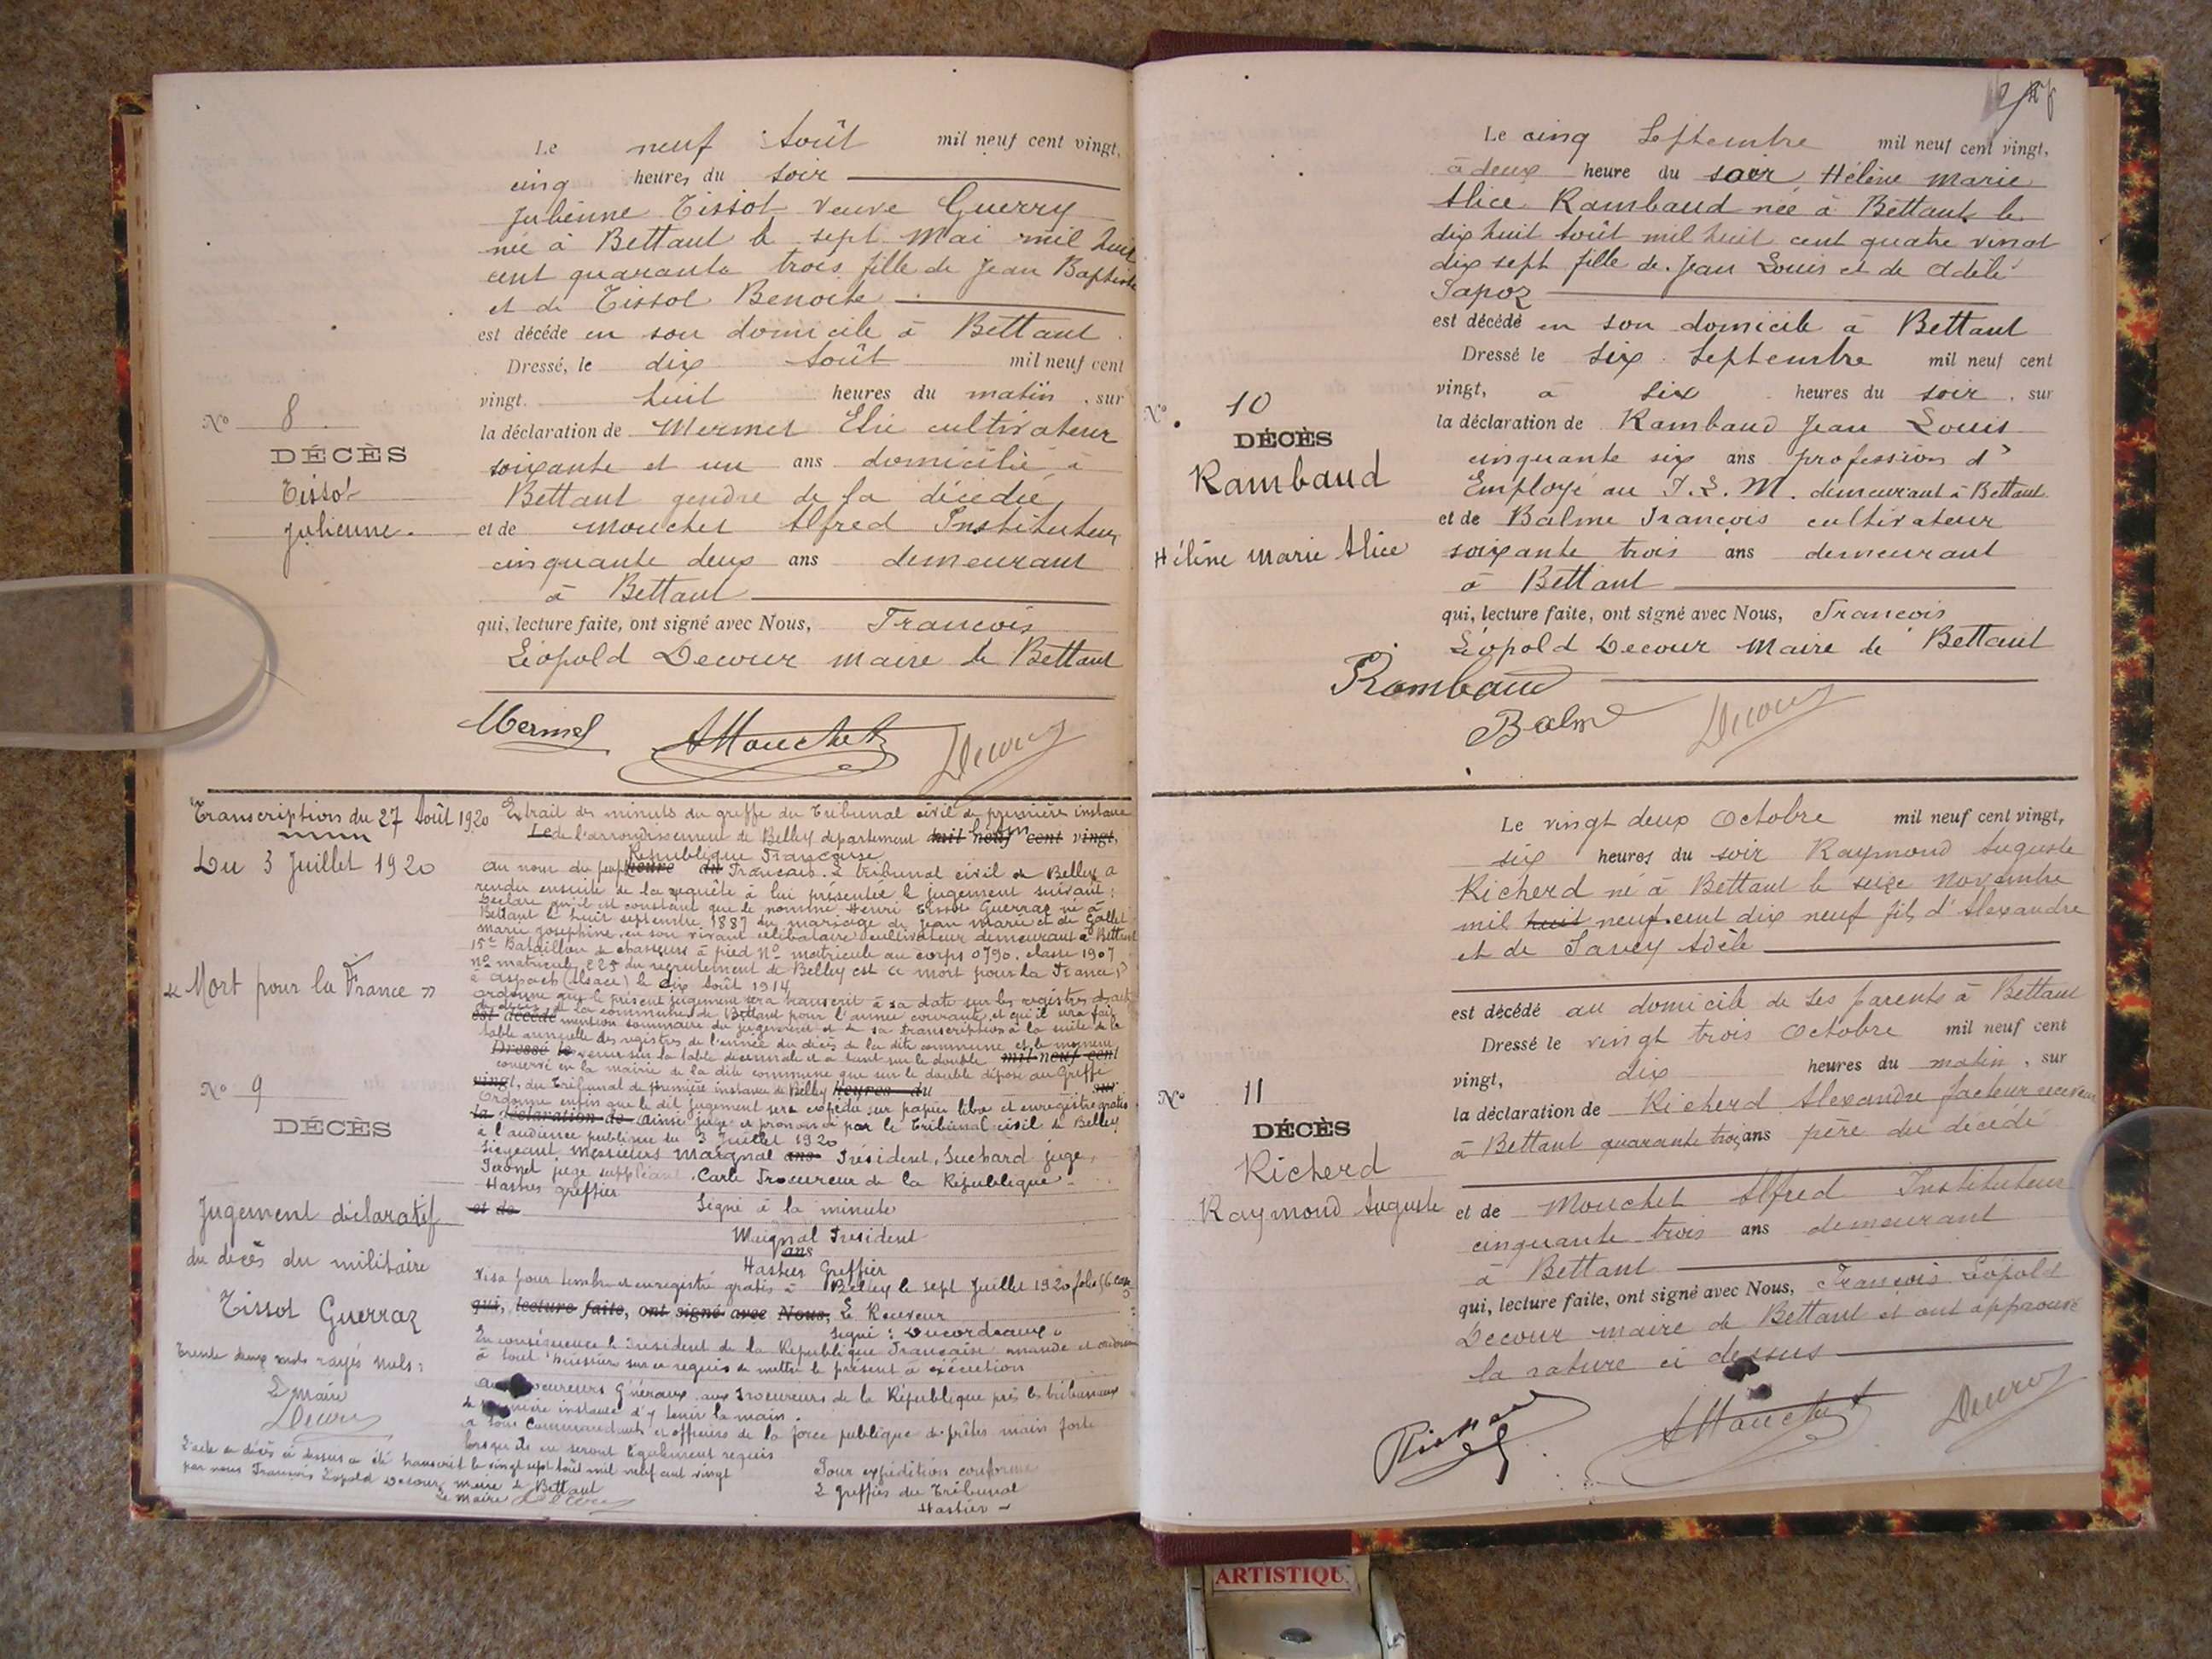 Le neuf Août mil neuf cent vingt,
cinq heures du soir
Julienne Tissot veuve Guerry
née à Bettant le sept Mai mil huit
cent quarante trois fille de Jean Baptiste
et de Tissot Benoite
est décédé en son domicile à Bettant
Dressé, le dix Août mil neuf cent
vingt. huit heures du matin, sur
la déclaration de Mermet Elie cultivateur
soixante et un ans domicilié à
Bettant gendre de la décédée,
et de Mouchet Alfred Instituteur
cinquante deux ans demeurant
à Bettant
qui, lecture faite, ont signé avec Nous, Francois
Léopold Decour maire de Bettant
Mermet AMouchet Decour
No 8
DÉCÈS
Tissot
Julienne.
Transcription du 27 Août 1920
Du 3 Juillet 1920
« Mort pour la France »
No 9
DÉCÈS
Jugement déclaratif
du décès du militaire
Tissot Guerraz
Trente deux mots rayés nuls:
Le Maire
Decour
Extrait des minutes du greffe du Tribunal civil de première instance
Le de l'arrondissement de Belley departement mil neuf cent vingt,
République Francaise
au nom du peuple heure du Francais. Le tribunal civil de Belley a
rendu ensuite de la requête à lui présentée le jugement suivant:
Déclare qu'il est constant que le nommé Henri Tissot Guerraz né à
Bettant le huit septembre 1887 du mariage de Jean Marie et de Gallet
Marie Josephine, en son vivant célibataire cultivateur demeurant à Bettant
15e Bataillon de chasseurs à pied No matricule au corps 0790, classe 1907
no matricule 225 du recrutement de Belley est « mort pour la France »
à Aspach (Alsace) le dix Août 1914
Ordonne que le présent jugement sera transcrit à sa date sur les registres d'actes
de décès de la commune de Bettant pour l'année courante et qu'il sera fait
est décédé mention sommaire du jugement et de sa transcription à la suite de la
table annuelle des registres de l'année du décès de la dite commune et le
Dressé le sur la table decennale et a tant sur le double mil neuf cent
conservé en la mairie de la dite commune que sur le double déposé au Greffe
vingt, du Tribunal de première instance de Belley heures du sur
Ordonne enfin que le dit jugement sera expédié sur papier libre et enregistré gratis
la déclaration de ainsi jugé et prononcé par le Tribunal civil de Belley
à l'audience publique du 3 Juillet 1920
Siégeant Messieurs Maignal ans Président, Suchard juge,
juge suppléant. Carle Procureur de la République
Hastier greffier
et de Signé à la minute
Maignal Président
ans
Hastier Greffier
Visa pour timbre et enregistré gratis à Belley le sept Juillet 1920 folio
qui, lecture faite, ont signé avec Nous, Le Receveur
signé: Ducordeaux
En conséquence le Président de la République Francaise mande et ordonne
à tout huissiers sur ce requis de mettre le présent à exécution
Généraux aux Procureurs de la République près les tribunaux
de première instance d'y tenir la main.
a tous Commandants et officiers de la force publique de prêter main forte
lorsqu'ils en seront légalement requis
L'acte de décès ci dessus a été transcrit le vingt sept Août mil neuf cent vingt
par nous Francois Léopold Decour, maire de Bettant
Le Maire Decour
Pour expédition conforme
Le greffier du Tribunal
Hastier
Le cinq Septembre mil neuf cent vingt,
à deux heure du soir Hélène Marie
Alice Rambaud née à Bettant le
dix huit Août mil huit cent quatre vingt
dix sept fille de Jean Louis et de Adèle
Sapoz
est décédé en son domicile à Bettant
Dressé le six Septembre mil neuf cent
vingt, à six heures du soir, sur
la déclaration de Rambaud Jean Louis
cinquante six ans profession d'
Employé au P.L.M. demeurant à Bettant
et de Balme Francois cultivateur
soixante trois ans demeurant
à Bettant
qui, lecture faite, ont signé avec Nous, Francois
Léopold Decour Maire de Bettant
Rambaud
Balme Decour
No 10
DÉCÈS
Rambaud
Hélène Marie Alice
Le vingt deux Octobre mil neuf cent vingt,
six heures du soir Raymond Auguste
Richerd né à Bettant le seize Novembre
mil huit neuf cent dix neuf fils d'Alexandre
et de Savey Adèle
est décédé au domicile de ses parents à Bettant
Dressé le vingt trois Octobre mil neuf cent
vingt, dix heures du matin, sur
la déclaration de Richerd Alexandre facteur receveur
à Bettant quarante trois ans père du décédé
et de Mouchet Alfred Instituteur
cinquante trois ans demeurant
à Bettant
qui, lecture faite, ont signé avec Nous, Francois Léopold
Decour maire de Bettant et ont approuvé
la rature ci dessus
AMouchet Decour
No 11
DÉCÈS
Richerd
Raymond Auguste
ARTISTIQU